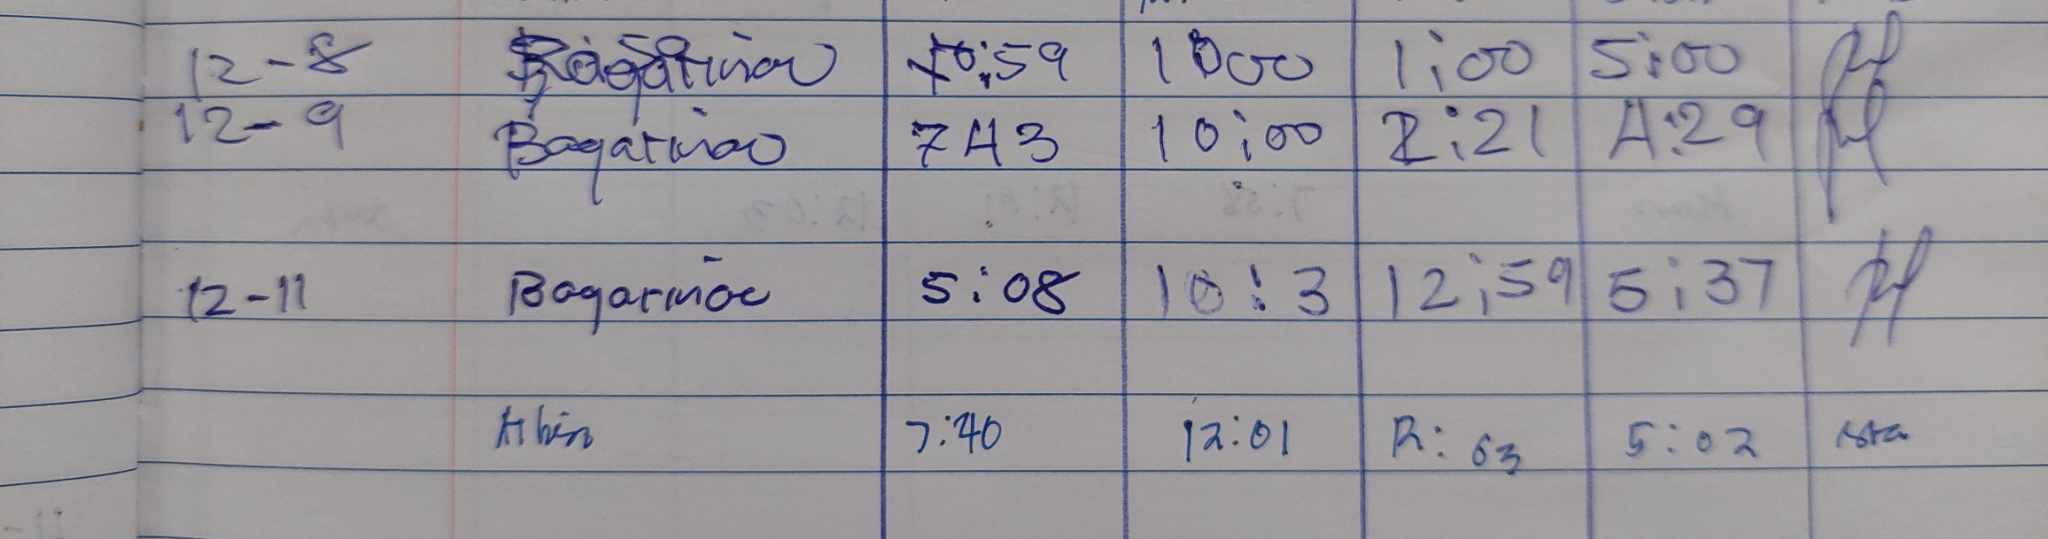 12-8 Bagarinao 7:59 1000 1:00 5:00
12-9 Bagarinao 743 10:00 2:21 4:29
12-11 Bagarinao 5:08 10:3 12:59 5:37
7:40 12:01 12:03 5:02